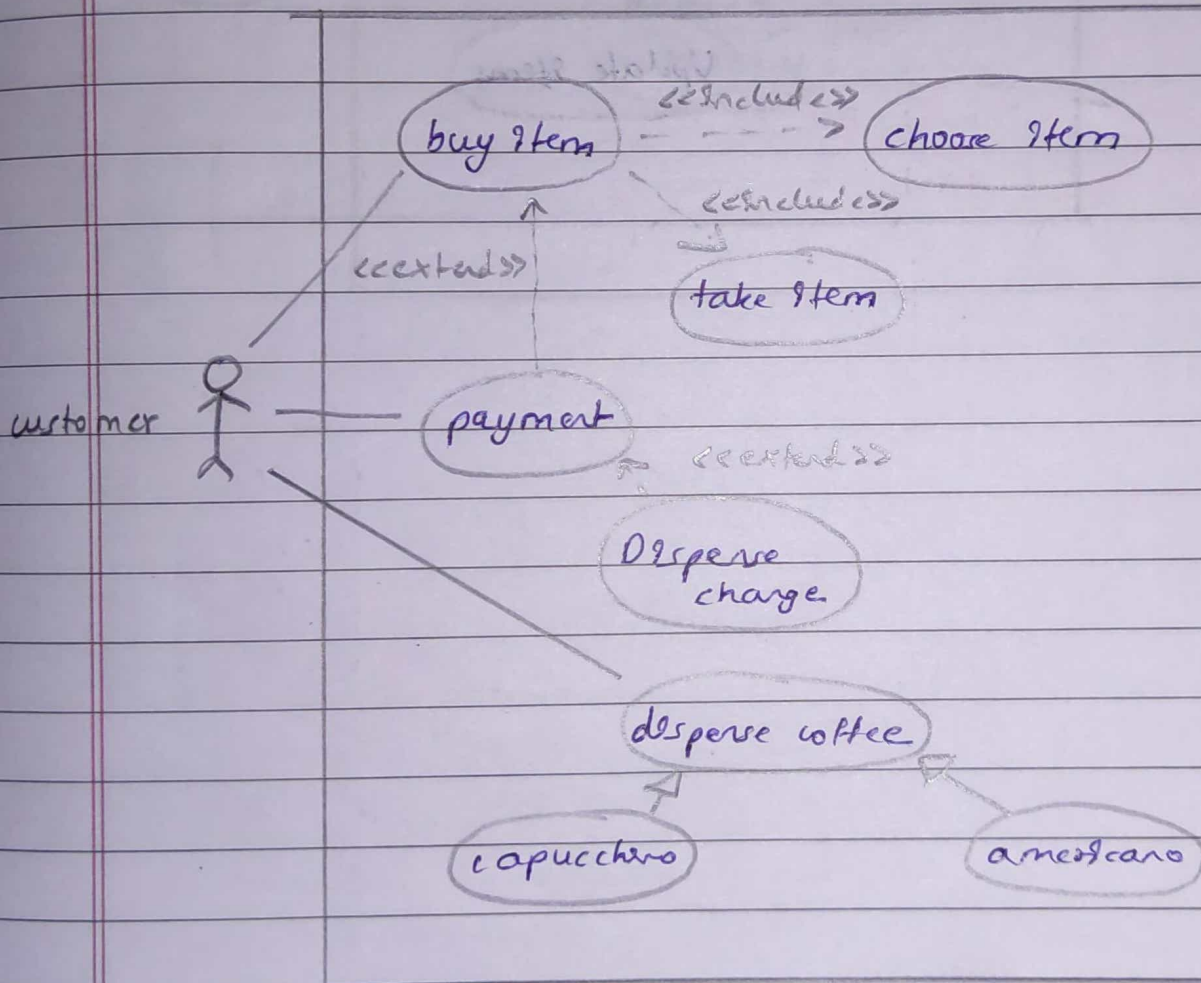 <<include>>
buy item
choose item
<<include>>
<<extend>>
take item
customer
payment
<<extend>>
Dispense
change
dispense coffee
capucchino
americano